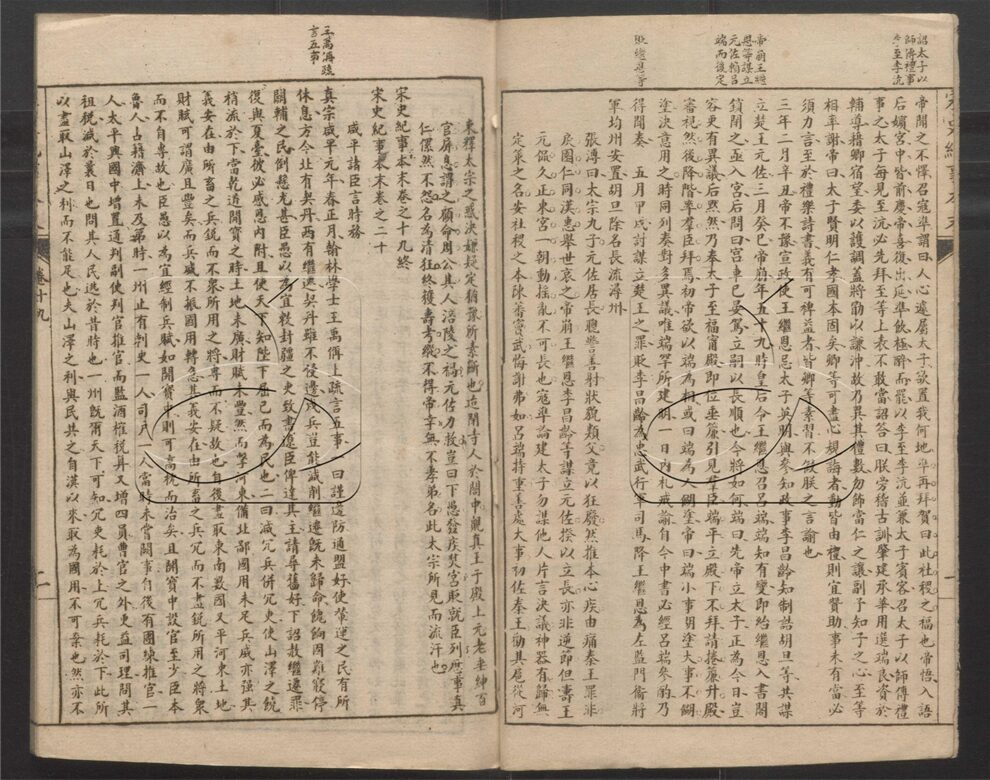 詔太子以
師傅禮事
李至李沆
帝崩王繼
恩等謀立
元佐賴呂
端而後定
貶繼恩等
帝聞之不懌召寇準謂曰人心遽屬太子欲置我何地準再拜賀曰此社稷之福也帝悟入語
后嬪宮中皆前慶帝喜復出延準飲極醉而罷以李至李沆並兼太子賓客召太子以師傅禮
事之太子每見至沆必先拜至等上表不敢當詔答曰朕旁稽古訓肇建承華用選端良資於
輔導藉卿宿望委以護調蓋將勖以謙沖故乃異其禮數勿飾當仁之讓副予知子之心至等
相率謝帝曰太子賢明仁孝國本固矣卿等可盡心規誨若動皆由禮則宜贊助事未有當必
須力言至於禮樂詩書義有可裨益者皆卿等素習不假朕之言諭也
三年二月辛丑帝不豫宣政使王繼恩忌太子英明與參知政事李昌齡知制誥胡旦等共謀
立楚王元佐三月癸巳帝崩年五十九時皇后令王繼恩召呂端端知有變即紿繼恩入書閣
鎖閉之亟入宮后問曰宮車已晏駕立嗣以長順也今將如何端曰先帝立太子正為今日豈
容更有異議后默然乃奉太子至福寧殿即位垂簾引見羣臣端平立殿下不拜請捲簾升殿
審視然後降階率羣臣拜焉初帝欲以端為相或曰端為人餬塗帝曰端小事餬塗大事不餬
塗決意用之時同列奏對多異議唯端罕所建明一日內札戒諭自今中書必經呂端參酌乃
得聞奏　五月甲戌討謀立楚王之罪貶李昌齡為忠武行軍司馬降王繼恩為左監門衛將
軍均州安置胡旦除名長流潯州
張溥曰太宗九子元佐居長聰警善射狀貌類父竟以狂廢然推本心疾由痛秦王罪非
戾園仁同漢惠舉世哀之帝崩王繼恩李昌齡等謀立元佐揆以立長亦非逆節但壽王
元偘久正東宮一朝動搖亂不可長也寇準論建太子勿謀他人片言決議神器有歸無
定策之名安社稷之本陳蕃竇武悔謝弗如呂端持重善處大事切佐秦王勖其扈從河
王禹偁疏
言五事
東釋太宗之惑決嫌疑定猶豫所素斷也迨閉寺人於閣中覲真王于殿上元老垂紳百
官屏息謂之顧命周公其人涪陵之禍元佐力救豈曰下愚發疾焚宮貶就臣列庶事真
仁儼然不怨名為清狂終獲壽考纔不得帝幸無不孝弟名此太宗所見而流汗也
宋史紀事本末卷之十九終
宋史紀事本末卷之二十
咸平諸臣言時務
真宗咸平元年春正月翰林學士王禹偁上疏言五事一曰謹邊防通盟好使輦運之民有所
休息方今北有契丹西有繼遷契丹雖不侵邊戍兵豈能減削繼遷既未歸命餽餉固難寢停
關輔之民倒懸尤甚臣愚以為宜敕封疆之吏致書遼臣俾達其主請尋舊好下詔赦繼遷罪
復與夏臺彼必感恩內附且使天下知陛下屈己而為民也二曰減冗兵併冗吏使山澤之饒
稍流於下當乾道開寶之時土地未廣財賦未豐然而擊河東備北鄙國用未足兵威亦強其
義安在由所畜之兵銳而不眾所用之將專而不疑故也自後盡取東南數國又平河東土地
財賦可謂廣且豐矣而兵威不振國用轉急其義安在由所畜之兵冗而不盡銳所用之將眾
而不自專故也臣愚以為宜經制兵賦如開寶中則可高枕而治矣且開寶中設官至少臣本
魯人占籍濟上未及第時一州止有刺史一人司戶一人當時未嘗闕事自後有團練推官一
人太平興國中增置通判副使判官推官而監酒榷稅算又增四員曹官之外更益司理問其
租稅減於曩日也問其人民逃於昔時也一州既爾天下可知冗吏耗於上冗兵耗於下此所
以盡取山澤之利而不能足也夫山澤之利與民共之自漢以來取為國用不可棄也然亦不
卷十九